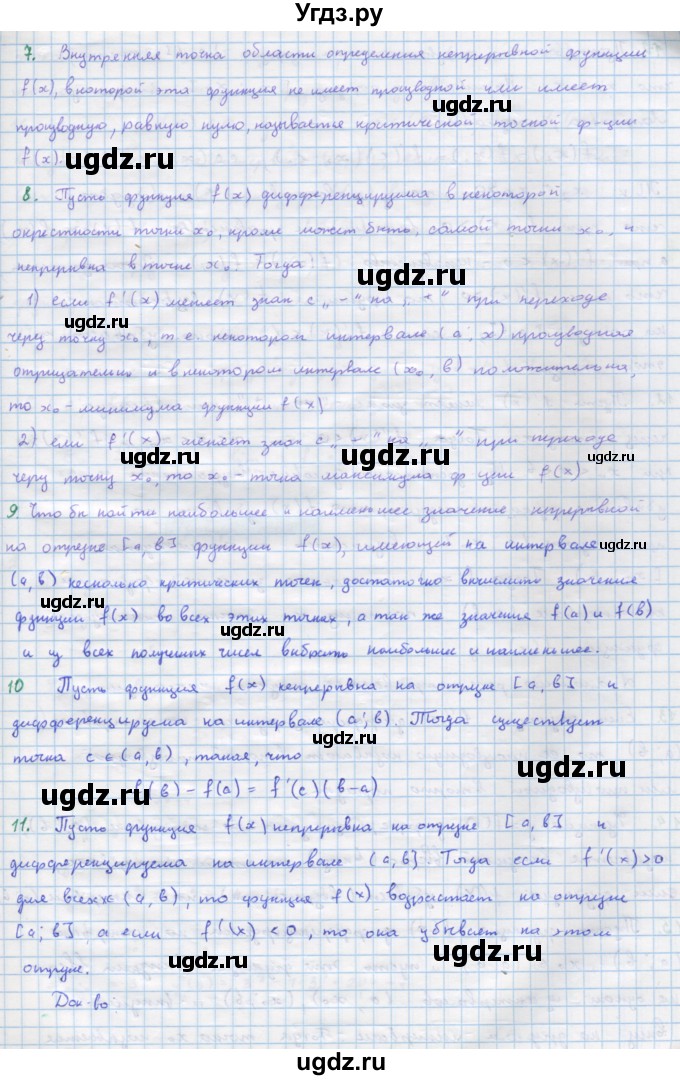 Угдз.ру
7. Внутренняя точка области определения непрерывной функции
f(x), в которой эта функция не имеет производной или имеет
ugdz.ru
производную, равную нулю, называется критической точкой ф-ции
f(x).
ugdz.ru
ugdz.ru
8. Пусть функция f(x) дифференцируема в некоторой
окрестности точки x₀, кроме может быть, самой точки x₀, и
непрерывна в точке x₀. Тогда:
ugdz.ru
1) если f'(x) меняет знак с „-“ на „+“ при переходе
ugdz.ru
через точку x₀, т.е. некотором интервале (a; x) производная
отрицательна и в некотором интервале (x₀, b) положительна,
то x₀ - минимума функции f(x)
2) если f'(x) меняет знак с „-“ на „-“ при переходе
ugdz.ru
ugdz.ru
через точку x₀, то x₀ - точка максимума ф ции f(x)
9. Что бы найти наибольшее и наименьшее значение непрерывной
на отрезке [a, b] функции f(x), имеющей на интервале
ugdz.ru
(a, b) несколько критических точек, достаточно вычислить значение
ugdz.ru
функции f(x) во всех этих точках, а так же значения f(a) и f(b)
ugdz.ru
и из всех полученых чисел выбрать наибольшее и наименьшее.
10 Пусть функция f(x) непрерывна на отрезке [a, b] и
дифференцируема на интервале (a; b). Тогда существует
ugdz.ru
точка c ∈ (a, b), такая, что
ugdz.ru
f(b) - f(a) = f'(c)(b-a)
ugdz.ru
11. Пусть функция f(x) непрерывна на отрезке [a, b] и
ugdz.ru
дифференцируема на интервале (a, b]. Тогда если f'(x)>0
для всех x (a, b), то функция f(x) возрастает на отрезке
ugdz.ru
[a; b] а если f'(x) < 0, то она убывает на этом
ugdz.ru
отрезке.
ugdz.ru
Док-во:
ugdz.ru
ugdz.ru